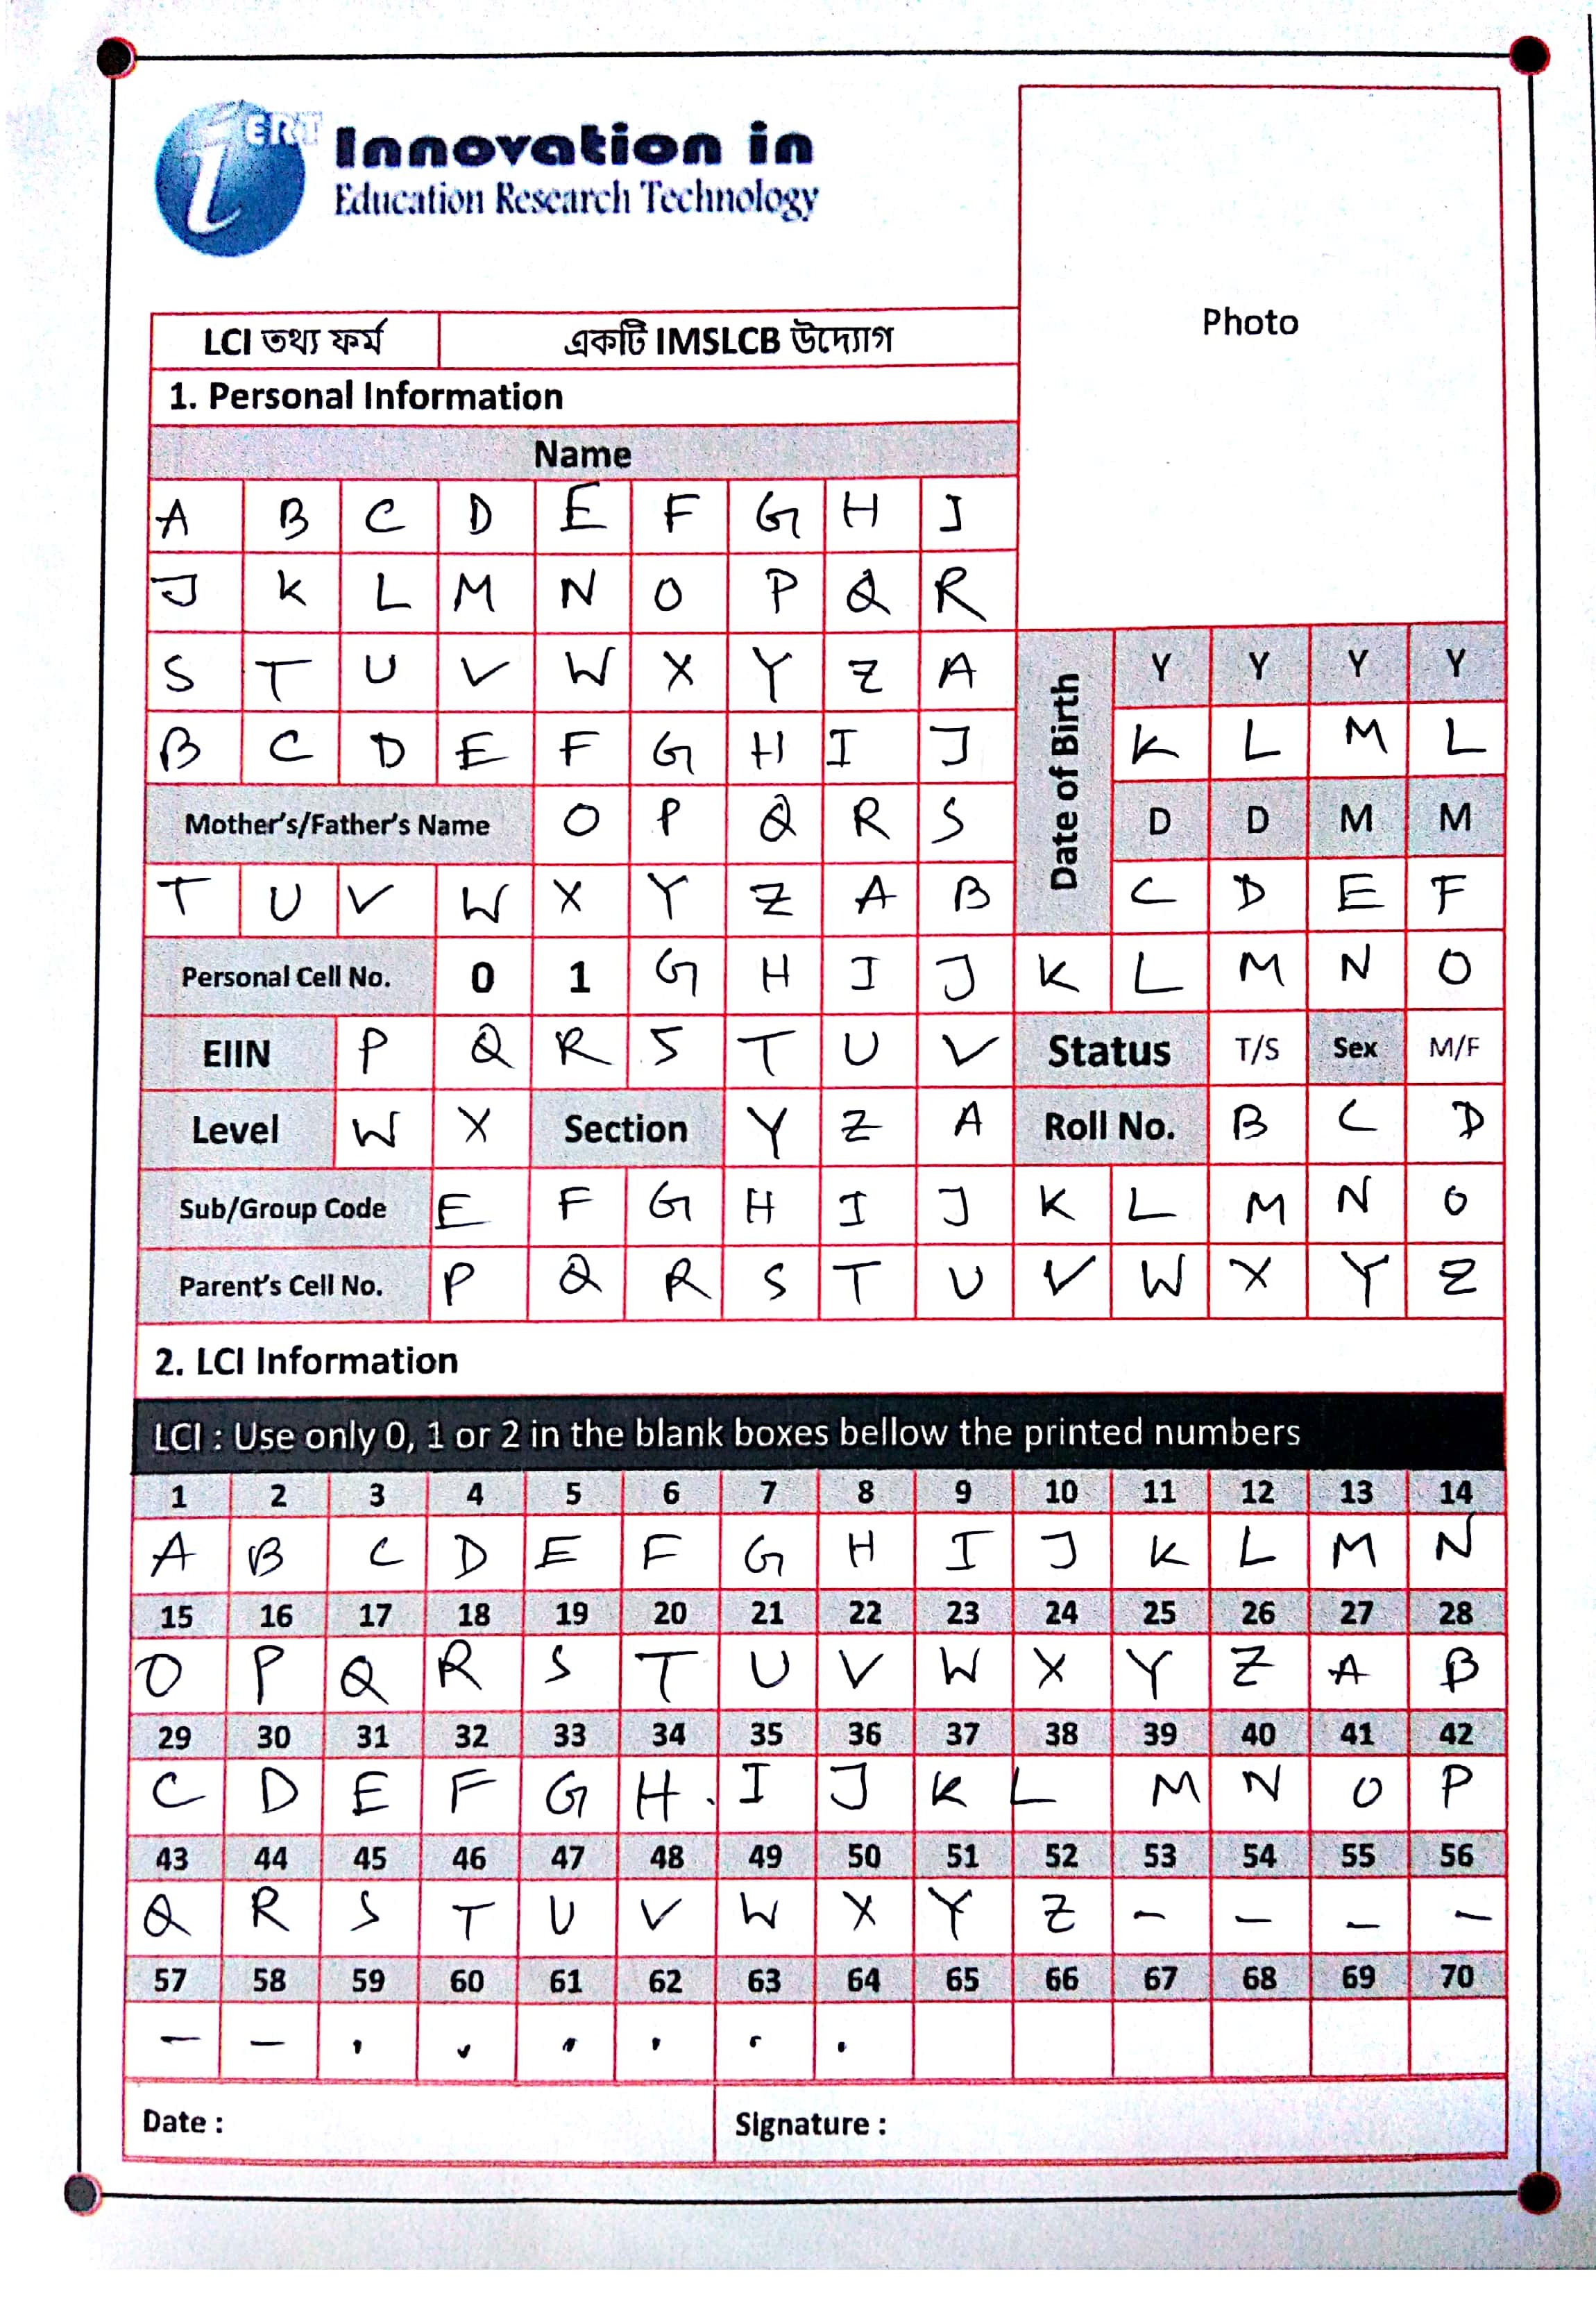 iERT Innovation in
Education Research Technology
Photo
LCI তথ্য ফর্ম একটি IMSLCB উদ্যোগ
1. Personal Information
Name
A B C D E F G H I
J K L M N O P Q R
S T U V W X Y Z A
Date of Birth
Y Y Y Y
B C D E F G H I J K L M L
Mother's/Father's Name O P Q R S D D M M
T U V W X Y Z A B C D E F
Personal Cell No. 0 1 G H I J K L M N O
EIIN P Q R S T U V Status T/S Sex M/F
Level W X Section Y Z A Roll No. B C D
Sub/Group Code E F G H I J K L M N O
Parent's Cell No. P Q R S T U V W X Y Z
2. LCI Information
LCI : Use only 0, 1 or 2 in the blank boxes bellow the printed numbers
1 2 3 4 5 6 7 8 9 10 11 12 13 14
A B C D E F G H I J K L M N
15 16 17 18 19 20 21 22 23 24 25 26 27 28
O P Q R S T U V W X Y Z A B
29 30 31 32 33 34 35 36 37 38 39 40 41 42
C D E F G H . I J K L M N O P
43 44 45 46 47 48 49 50 51 52 53 54 55 56
Q R S T U V W X Y Z - - - -
57 58 59 60 61 62 63 64 65 66 67 68 69 70
- - . . . . . .
Date : Signature :